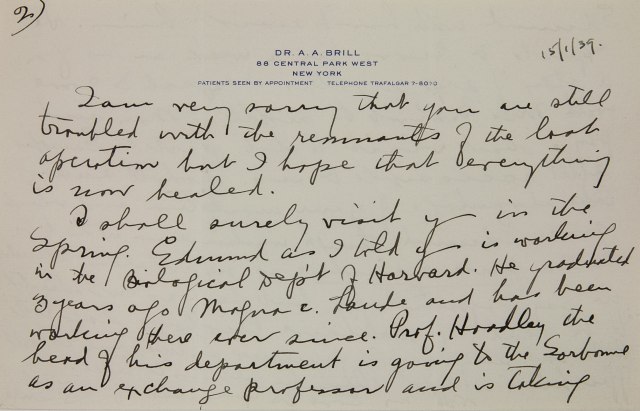 2)
15/1/39.
DR. A. A. BRILL
88 CENTRAL PARK WEST
NEW YORK
PATIENTS SEEN BY APPOINTMENT TELEPHONE TRAFALGAR 7-8020
I am very sorry that you are still
troubled with the remnants of the last
operation but I hope that everything
is now healed.
I shall surely visit you in the
Spring. Edmund as I told you is working
in the Biological Dep't of Harvard. He graduated
3 years ago Magna c. Laude and has been
working there ever since. Prof. Hoadley the
head of his department is going to the Sorbonne
as an exchange professor and is taking